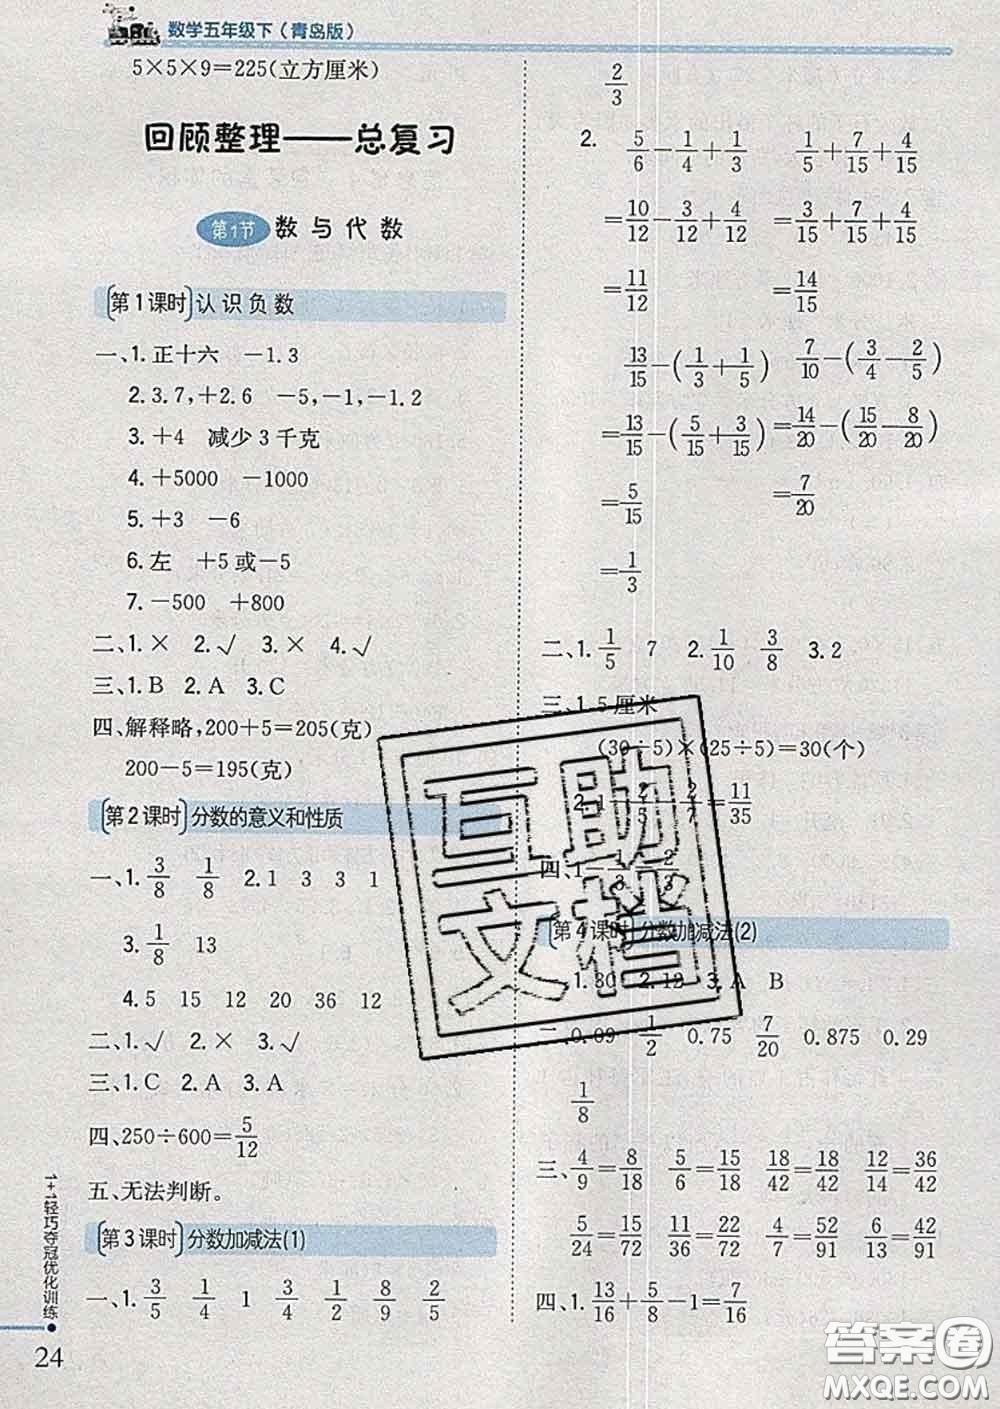 数学五年级下（青岛版）
5×5×9=225(立方厘米)
回顾整理——总复习
第1节 数与代数
第1课时 认识负数
一、1. 正十六 -1.3
2. 3.7,+2.6 -5,-1,-1.2
3. +4 减少3千克
4. +5000 -1000
5. +3 -6
6. 左 +5或-5
7. -500 +800
二、1. × 2. √ 3. × 4. √
三、1. B 2. A 3. C
四、解释略,200+5=205(克)
200-5=195(克)
第2课时 分数的意义和性质
一、1. 3/8 1/8 2. 1 3 3 1
3. 1/8 13
4. 5 15 12 20 36 25
二、1. √ 2. × 3. √
三、1. C 2. A 3. A
四、250÷600=5/12
五、无法判断。
第3课时 分数加减法(1)
一、1. 3/5 1/4 1 3/4 1/2 8/9 2/5
2/3
2. 5/6-1/4+1/3 1/5+7/15+4/15
=10/12-3/12+4/12 =3/15+7/15+4/15
=11/12 =14/15
13/15-(1/3+1/5) 7/10-(3/4-2/5)
=13/15-(5/15+3/15) =14/20-(15/20-8/20)
=5/15 =7/20
=1/3
二、1. 1/5 7 2. 1/10 3/8 3. 2
三、1. 5厘米
(30÷5)×(25÷5)=30(个)
2. 1-2/5-2/7=11/35
四、1-1/3=2/3
第4课时 分数加减法(2)
一、1. 30 2. 12 3. A B
二、0.09 1/2 0.75 7/20 0.875 0.29
1/8
三、4/9=8/18 5/6=15/18 1/42=1/42 6/7=36/42
5/24=15/72 11/36=22/72 4/7=52/91 6/13=42/91
四、1. 13/16+5/8-1=7/16
1+1轻巧夺冠优化训练
24
互助文档
答案圈
MXQE.COM